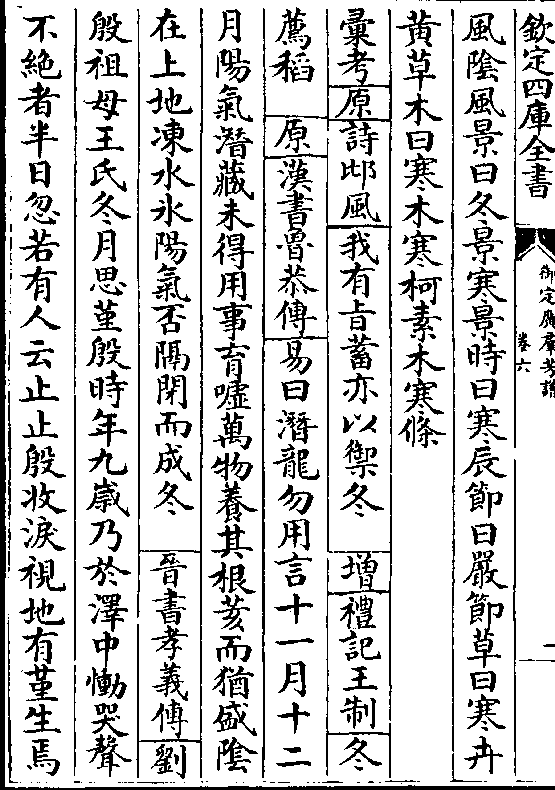 欽定四庫全書
御定廣羣芳譜
卷六
一
風陰風景曰冬景寒景時曰寒辰節曰嚴節草曰寒卉
黃草木曰寒木寒柯素木寒條
彙考原詩邶風我有旨蓄亦以禦冬 增禮記王制冬
薦稻 原漢書魯恭傳易曰潛龍勿用言十一月十二
月陽氣潛藏未得用事育噓萬物養其根荄而猶盛陰
在上地凍水氷陽氣否隔閉而成冬 晉書孝義傳劉
殷祖母王氏冬月思堇殷時年九歲乃於澤中慟哭聲
不絶者半日忽若有人云止止殷收淚視地有堇生焉